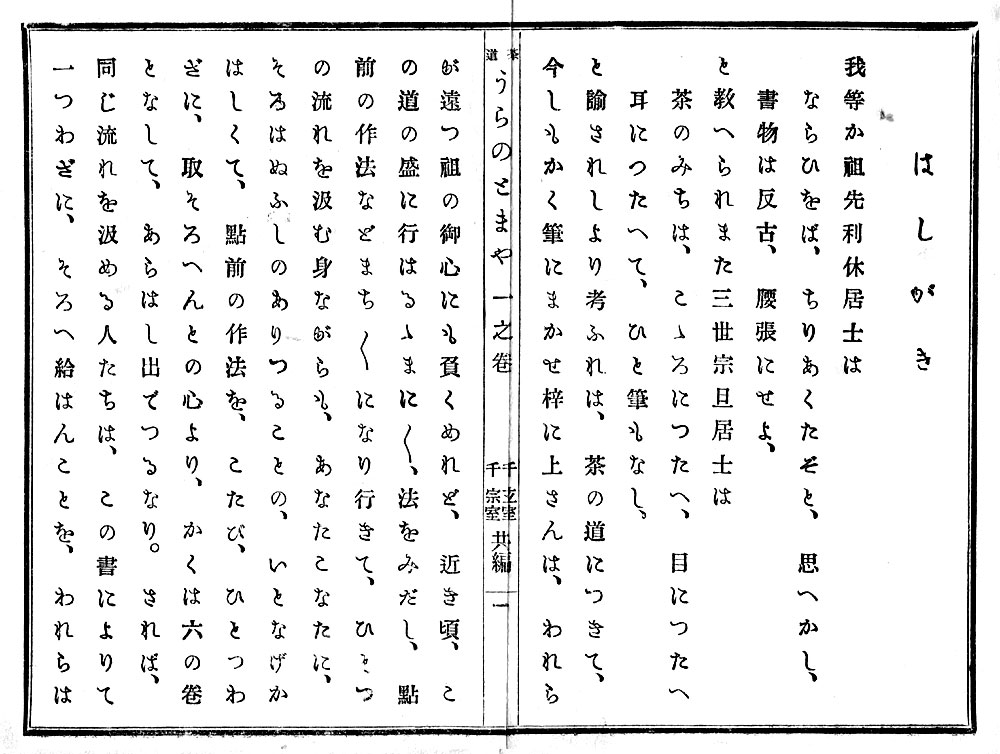 はしがき
我等か祖先利休居士は
ならひをば、ちりあくたぞと、思へかし、
書物は反古、腰張にせよ、
と敎へられまた三世宗旦居士は
茶のみちは、こゝろにつたへ、目につたへ
耳につたへて、ひと筆もなし、
と諭されしより考ふれは、茶の道につきて、
今しもかく筆にまかせ梓に上さんは、われら
茶道 うらのとまや 一之卷 千玄室 千宗室 共編 一
が遠つ祖の御心にも負くめれど、近き頃、こ
の道の盛に行はるゝまに〱、法をみだし、點
前の作法などまち〱になり行きて、ひとつ
の流れを汲む身ながらも、あなたこなたに、
そろはぬふしのありつることの、いとなげか
はしくて、點前の作法を、こたび、ひとつわ
ざに、取そろへんとの心より、かくは六の卷
となして、あらはし出でつるなり。されば、
同じ流れを汲める人たちは、この書によりて
一つわざに、そろへ給はんことを、われらは